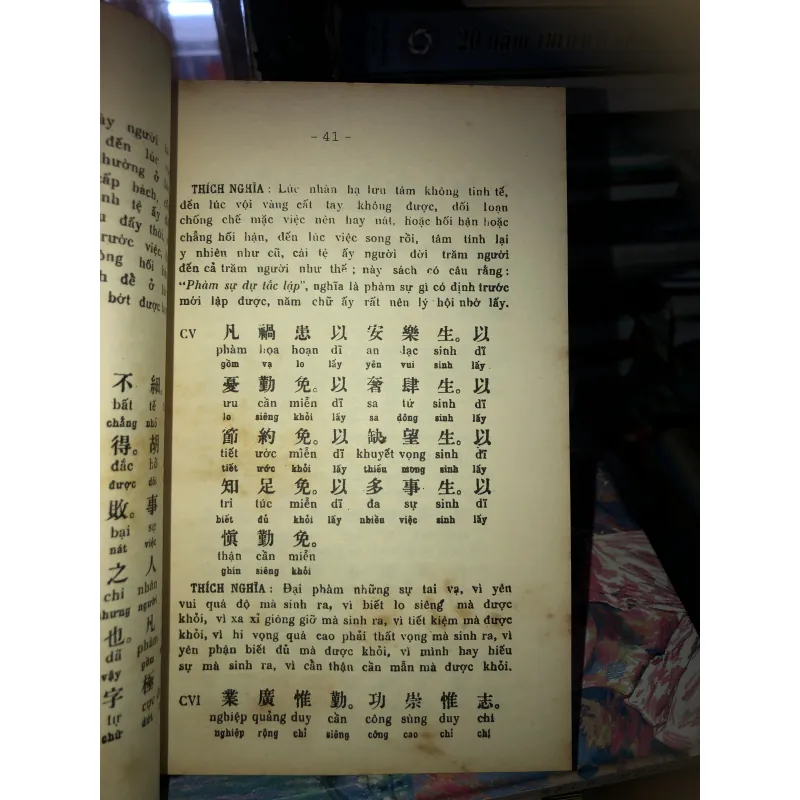 20 năm
- 41 -
THÍCH NGHĨA : Lúc nhàn hạ lưu tâm không tinh tế,
đến lúc vội vàng cất tay không được, đối loạn
chống chế mặc việc nên hay nát, hoặc hối hận hoặc
chẳng hối hận, đến lúc việc song rồi, tâm tính lại
y nhiên như cũ, cái tệ ấy người đời trăm người
đến cả trăm người như thế ; này sách có câu rằng :
“Phàm sự dự tắc lập”, nghĩa là phàm sự gì có định trước
mới lập được, năm chữ ấy rất nên lý hội nhờ lấy.
CV 凡 禍 患 以 安 樂 生。以
phàm họa hoạn dĩ an lạc sinh dĩ
gồm vạ lo lấy yên vui sinh lấy
憂 勤 免。以 奢 肆 生。以
ưu cần miễn dĩ sa tứ sinh dĩ
lo siêng khỏi lấy sa dông sinh lấy
節 約 免。以 缺 望 生。以
tiết ước miễn dĩ khuyết vọng sinh dĩ
tiết ước khỏi lấy thiếu mong sinh lấy
知 足 免。以 多 事 生。以
tri túc miễn dĩ đa sự sinh dĩ
biết đủ khỏi lấy nhiều việc sinh lấy
愼 勤 免。
thận cần miễn
ghín siêng khỏi
THÍCH NGHĨA : Đại phàm những sự tai vạ, vì yên
vui quá độ mà sinh ra, vì biết lo siêng mà được
khỏi, vì xa xỉ gióng giữ mà sinh ra, vì tiết kiệm mà được
khỏi, vì hi vọng quá cao phải thất vọng mà sinh ra, vì
yên phận biết đủ mà được khỏi, vì mình hay hiếu
sự mà sinh ra, vì cẩn thận cần mẫn mà được khỏi.
CVI 業 廣 惟 勤。功 崇 惟 志。
nghiệp quảng duy cần công sùng duy chí
nghiệp rộng chỉ siêng công cao chỉ chí
ày người
đến lúc
hường ở
cấp bách,
nh tệ ấy
u đấy thôi,
rước việc,
òng hối
h đề ở
bớt được
不 細
bất tế
chẳng nhỏ
得。胡
đắc hồ
được
敗。事
bại sự
nát việc
之 人
chi nhân
nhưng người
也。凡
dã phàm
vậy gồm
字 極
tự cực
chữ